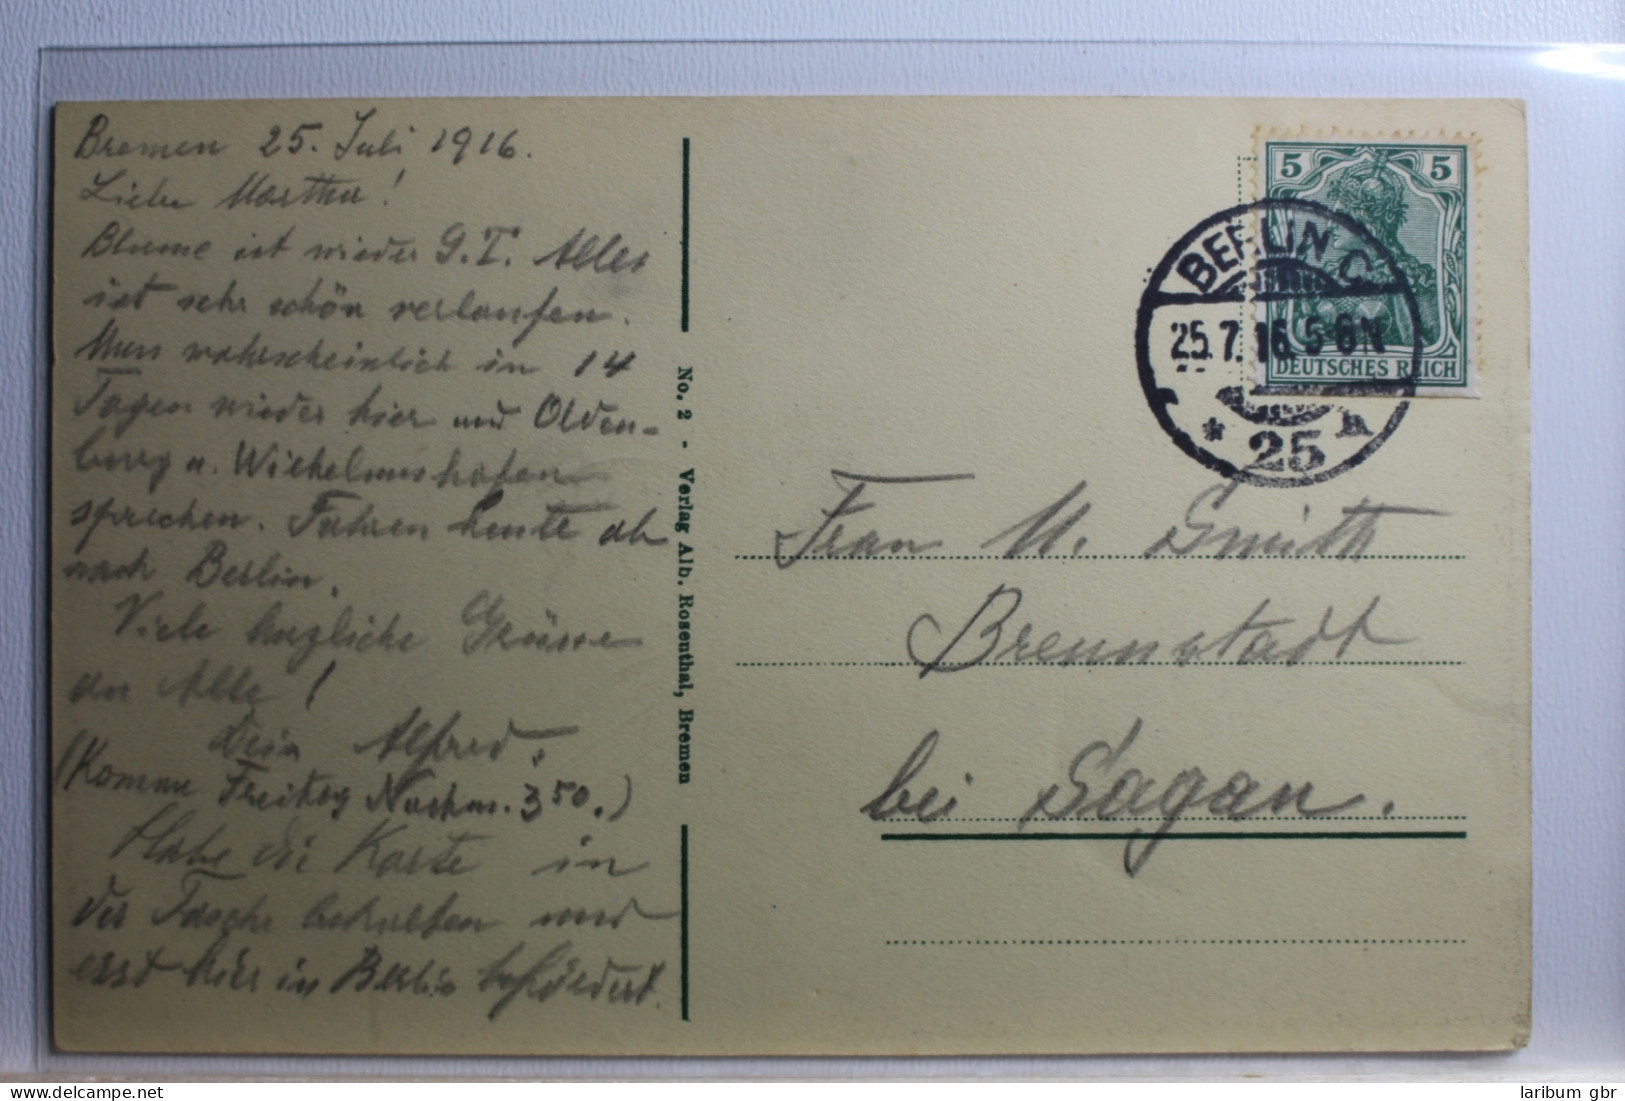 Bremen 25. Juli 1916.
Liebe Martha!
Blume ist wieder G.I. Alles
ist sehr schön verlaufen.
Muss wahrscheinlich in 14
Tagen wieder hier und Olden-
burg u. Wilhelmshafen
sprechen. Fahren heute ab
nach Berlin.
Viele herzliche Grüsse
an Alle!
Dein Alfred.
(Komme Freitag Nachm. 350.)
Habe die Karte in
der Tasche behalten und
erst hier in Berlin befördert.
No. 2 - Verlag Alb. Rosenthal, Bremen
5 5
DEUTSCHES REICH
BERLIN C
25.7.16. 5-6N
* 25
Frau M. Smith
Brennstadt
bei Sagan.
delcampe.net
laribum gbr